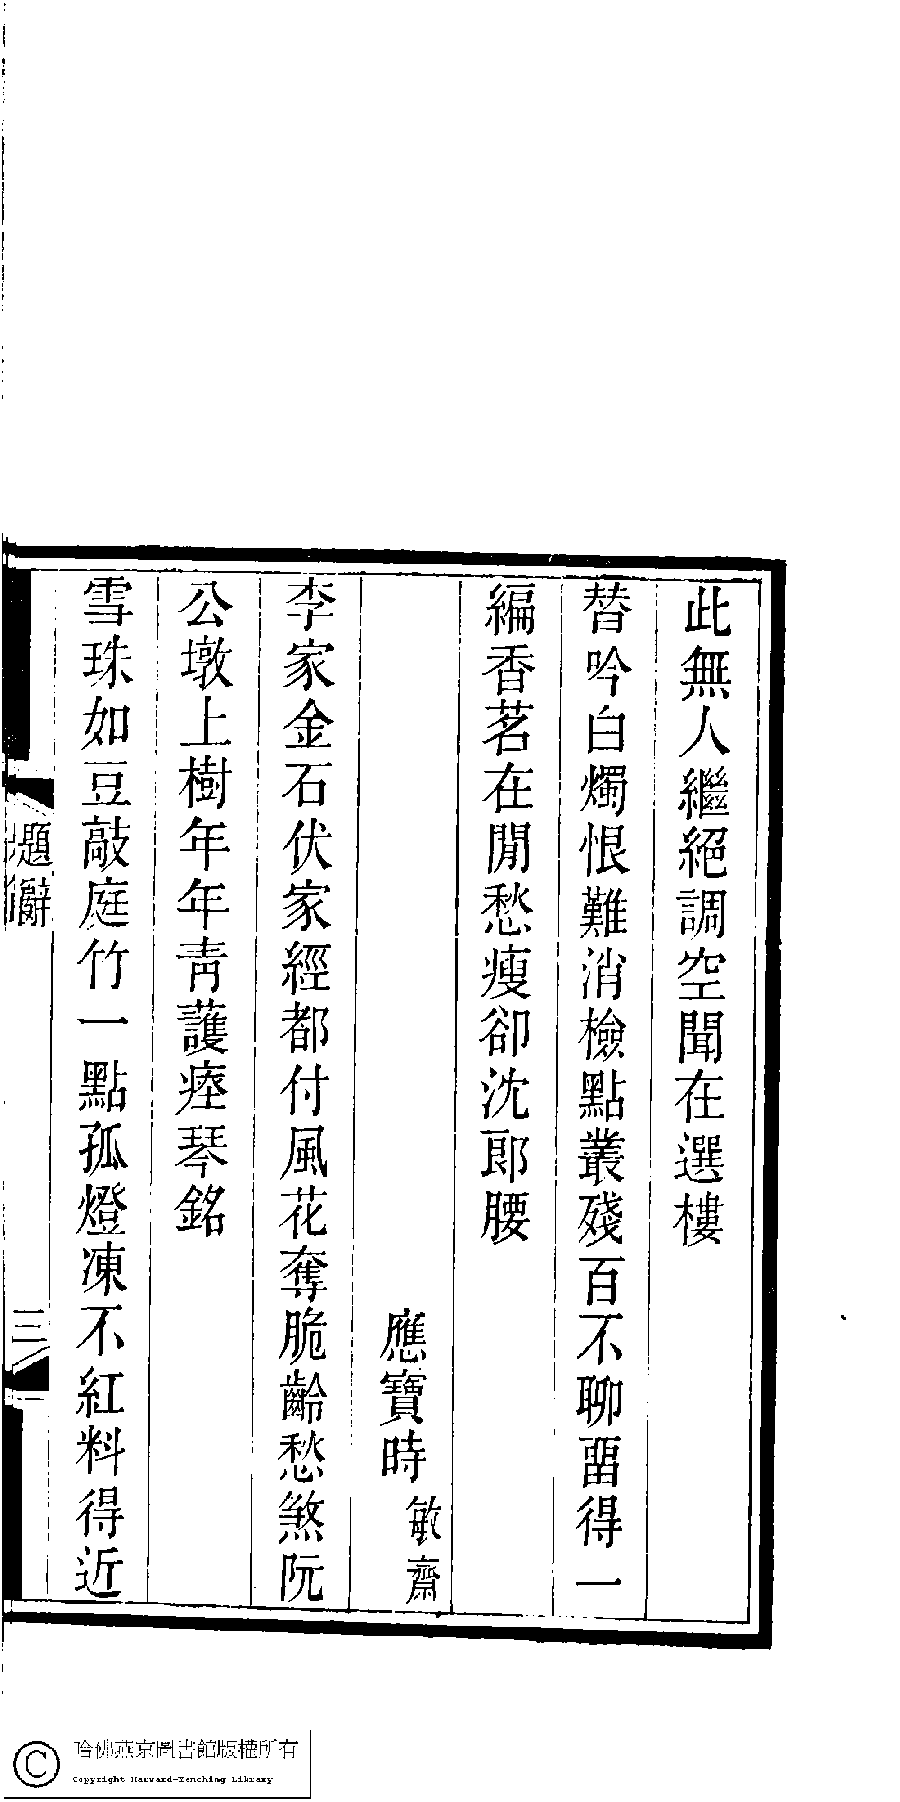 此無人繼絕調空聞在選樓
替吟白燭恨難消檢點叢殘百不聊畱得一
編香茗在閒愁瘦卻沈郎腰
應寶時敏齋
李家金石伏家經都付風花奪脆齡愁煞阮
公墩上樹年年青護瘞琴銘
雪珠如豆敲庭竹一點孤燈凍不紅料得近
題辭
三
哈佛燕京圖書館版權所有
Copyright Harvard-Yenching Library